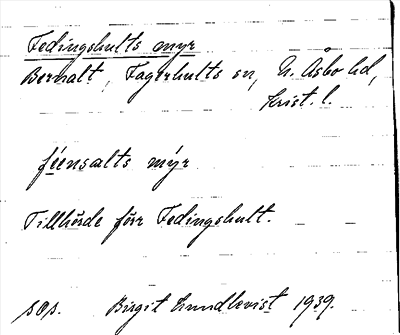 Fedingshults myr
Bernalt, Fagerhults sn, N. Åsbo hd,
Krist. l.
féensalts mýr
Tillhörde förr Fedingshult.
sos. Birgit Lundkvist 1939.